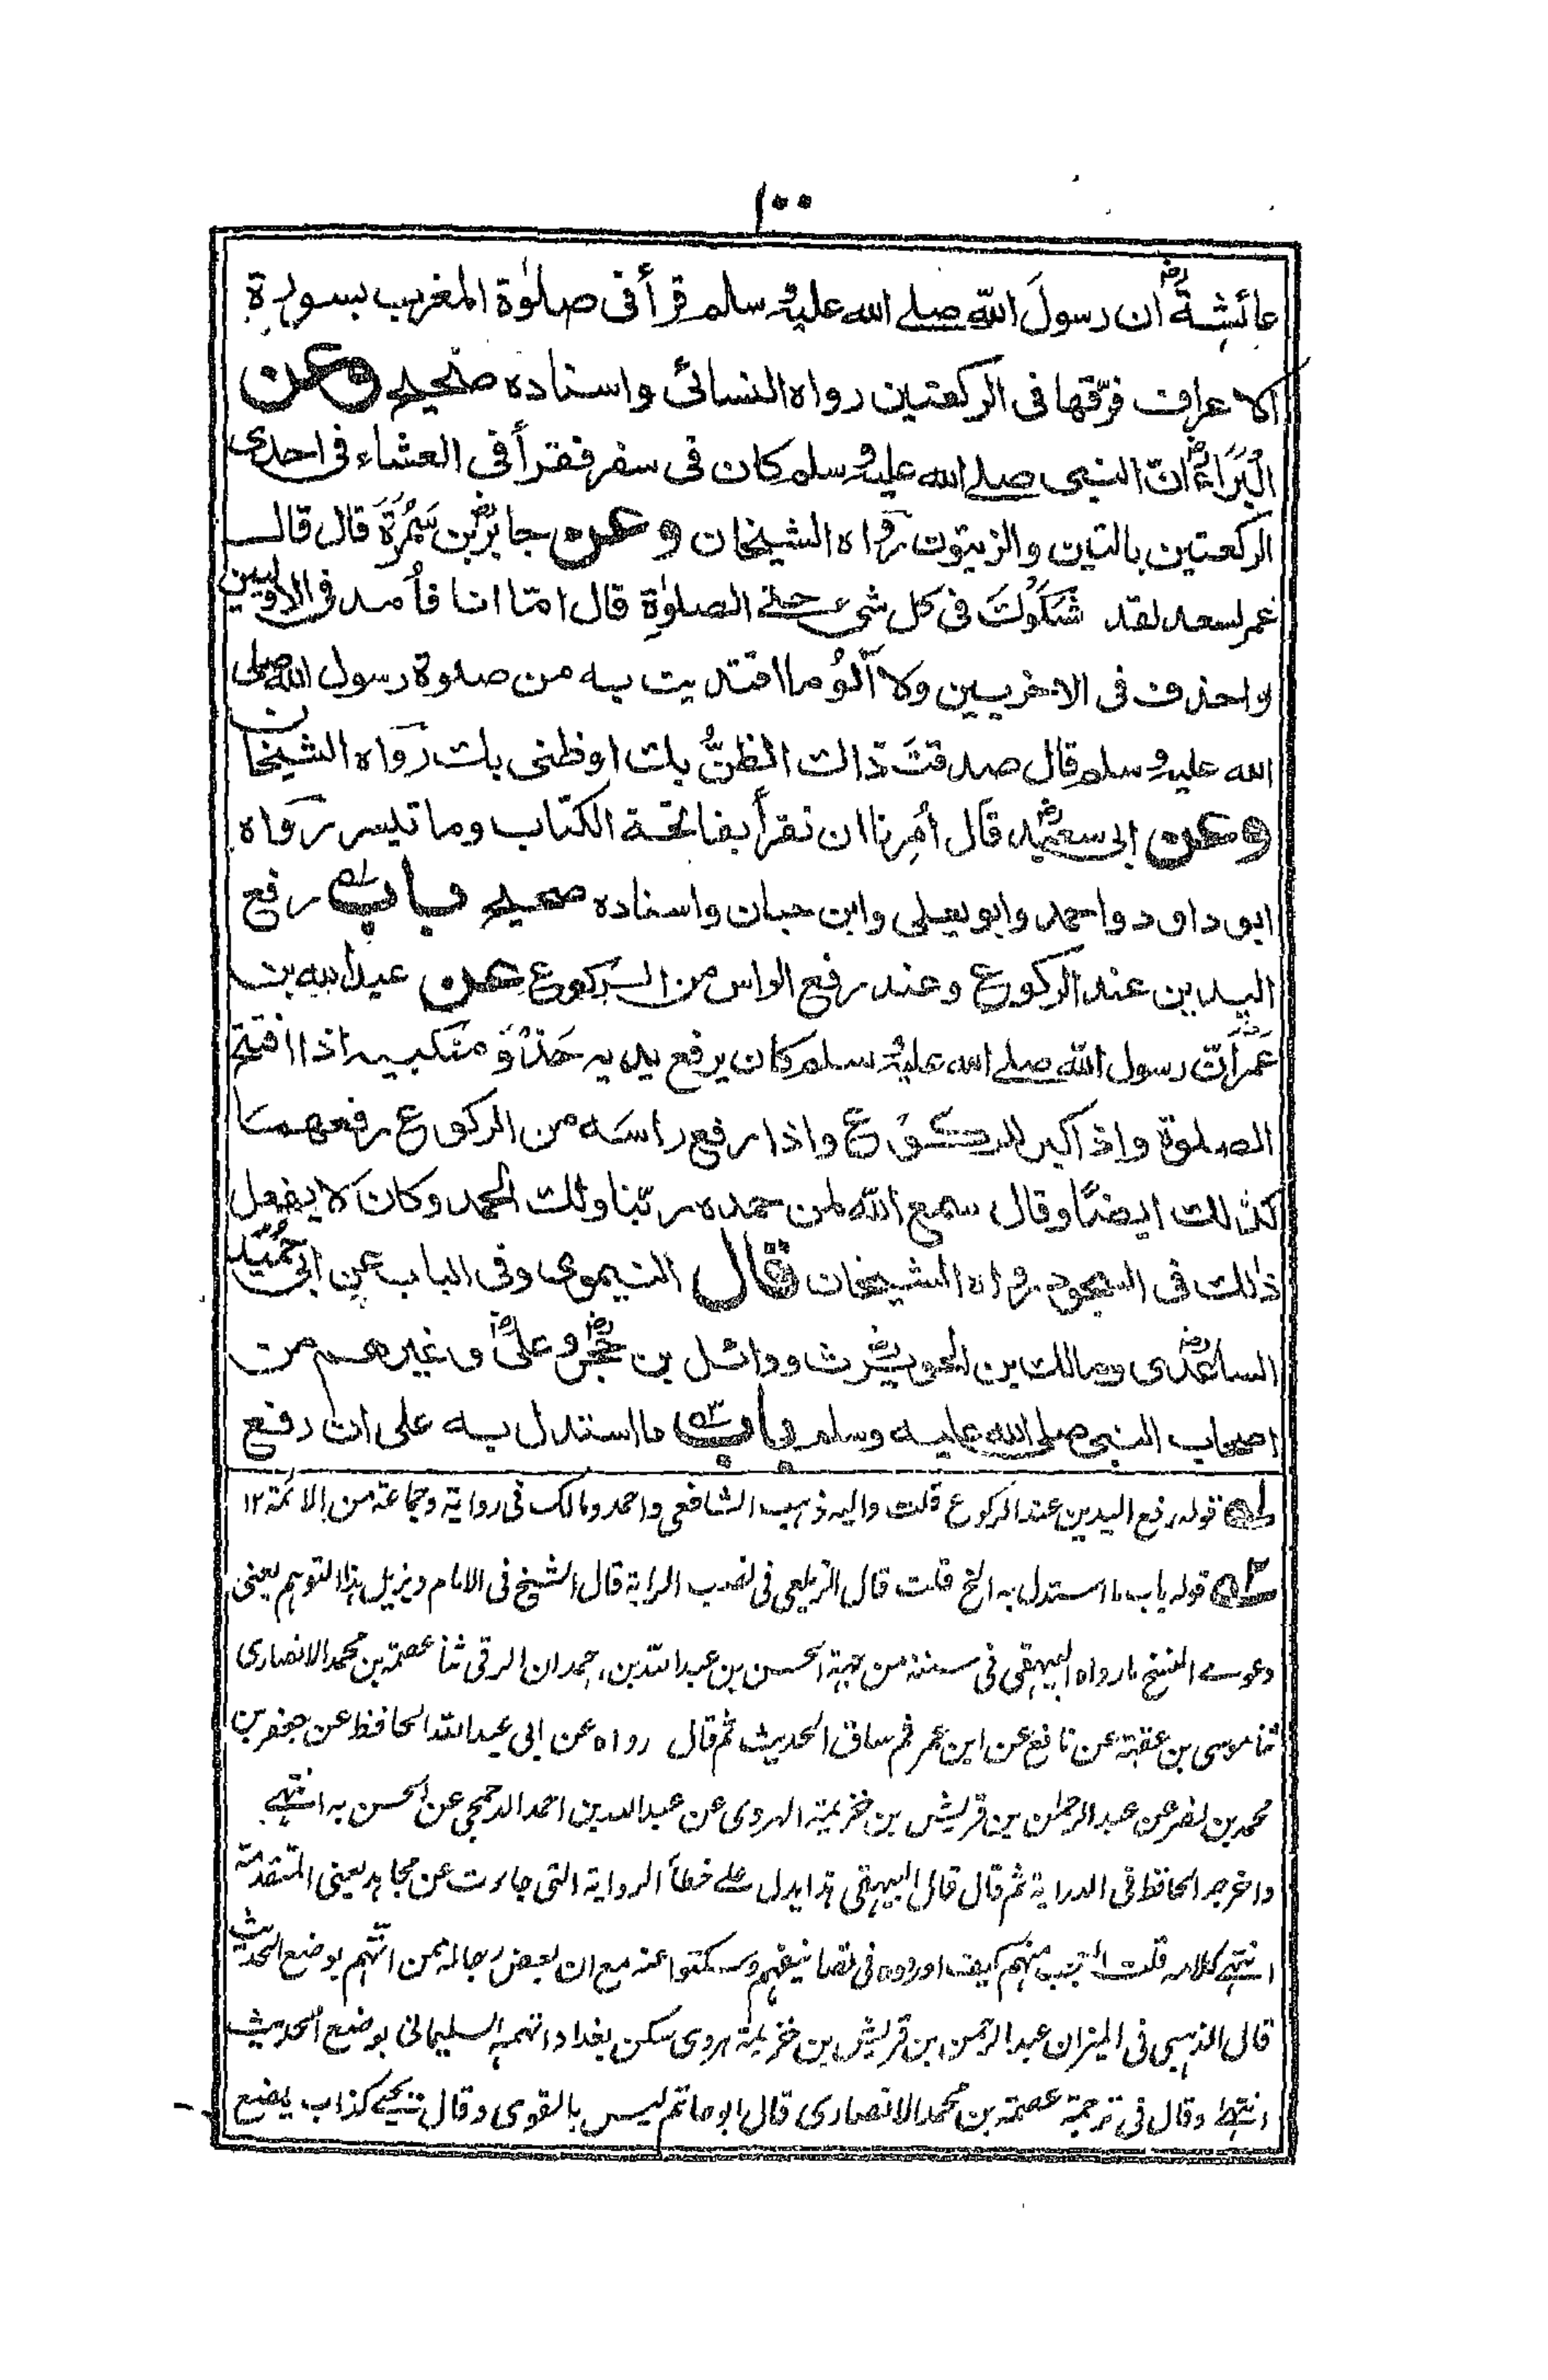 ١٠٠
عائشةؓ ان رسولَ اللّٰه صلى الله عليه وسلم قرأ فى صلوٰة المغرب بسورة
الاعراف فرّقها فى الركعتين رواه النسائى واسناده صحيح وعن
الْبَرَاءؓ انّ النبى صلى الله عليه وسلم كان فى سفر فقرأ فى العشاء فى احدى
الركعتين بالتين والزيتون رواه الشيخان وعن جابرؓ بن سَمُرَةَ قال قال
عمر لسعد لقد شَكَوْكَ فى كل شىء حتى الصلوٰةِ قال امّا انا فأمد فى الاوليين
واحذف فى الاخريين ولا آلُو ما اقتديت به من صلوة رسول الله صلى
الله عليه وسلم قال صدقتَ ذاك الظنُّ بك او ظنى بك رواه الشيخان
وعن ابى سعيدؓ قال اُمِرنا ان نقرأ بفاتحة الكتاب وما تيسر رواه
ابو داود واحمد وابو يعلى وابن حبان واسناده صحيح باب ۱ رفع
اليدين عند الركوع وعند رفع الراس من الركوع عن عبد الله بن
عمرؓ انّ رسول اللّٰه صلى الله عليه وسلم كان يرفع يديه حَذْوَ منكبيه اذا افتتح
الصلوة واذا كبر للركوع واذا رفع راسه من الركوع رفعهما
كذلك ايضًا وقال سمع اللّٰه لمن حمده ربّنا ولك الحمد وكان لا يفعل
ذٰلك فى السجود رواه الشيخان قال النيموى وفى الباب عن ابى حُمَيد
الساعدىؓ ومالك بن الحويرثؓ ووائل بن حُجْرؓ وعلىؓ وغيرهم من
اصحاب النبى صلى الله عليه وسلم باب ۲ ما استدل به على ان رفع
۱ قوله رفع اليدين عند الركوع قلت واليه ذهب الشافعى واحمد ومالك فى رواية وجماعة من الائمة ١٢
۲ قوله باب ما استدل به الخ قلت قال الزيلعى فى نصب الراية قال الشيخ فى الامام ويزيل هذا التوهم يعنى
دعوى النسخ ما رواه البيهقى فى سننه من جهة الحسن بن عبد الله بن حمدان الرقى ثنا عصمة بن محمد الانصارى
ثنا موسى بن عقبة عن نافع عن ابن عمر ثم ساق الحديث ثم قال رواه عن ابى عبد الله الحافظ عن جعفر بن
محمد بن نصر عن عبد الرحمٰن بن قريش بن خزيمة الهروى عن عبد الله بن احمد الدمجى عن الحسن به انتهى
واخرجه الحافظ فى الدراية ثم قال قال البيهقى هذا يدل على خطأ الرواية التى جاءت عن مجاهد يعنى المتقدمة
انتهى كلامه قلت العجب منهم كيف اوردوه فى تصانيفهم وسكتوا عنه مع ان بعض رجاله ممن اتّهم بوضع الحديث
قال الذهبى فى الميزان عبد الرحمن بن قريش بن خزيمة هروى سكن بغداد اتهمه السليمانى بوضع الحديث
انتهى وقال فى ترجمة عصمة بن محمد الانصارى قال ابو حاتم ليس بالقوى وقال يحيى كذاب يضع